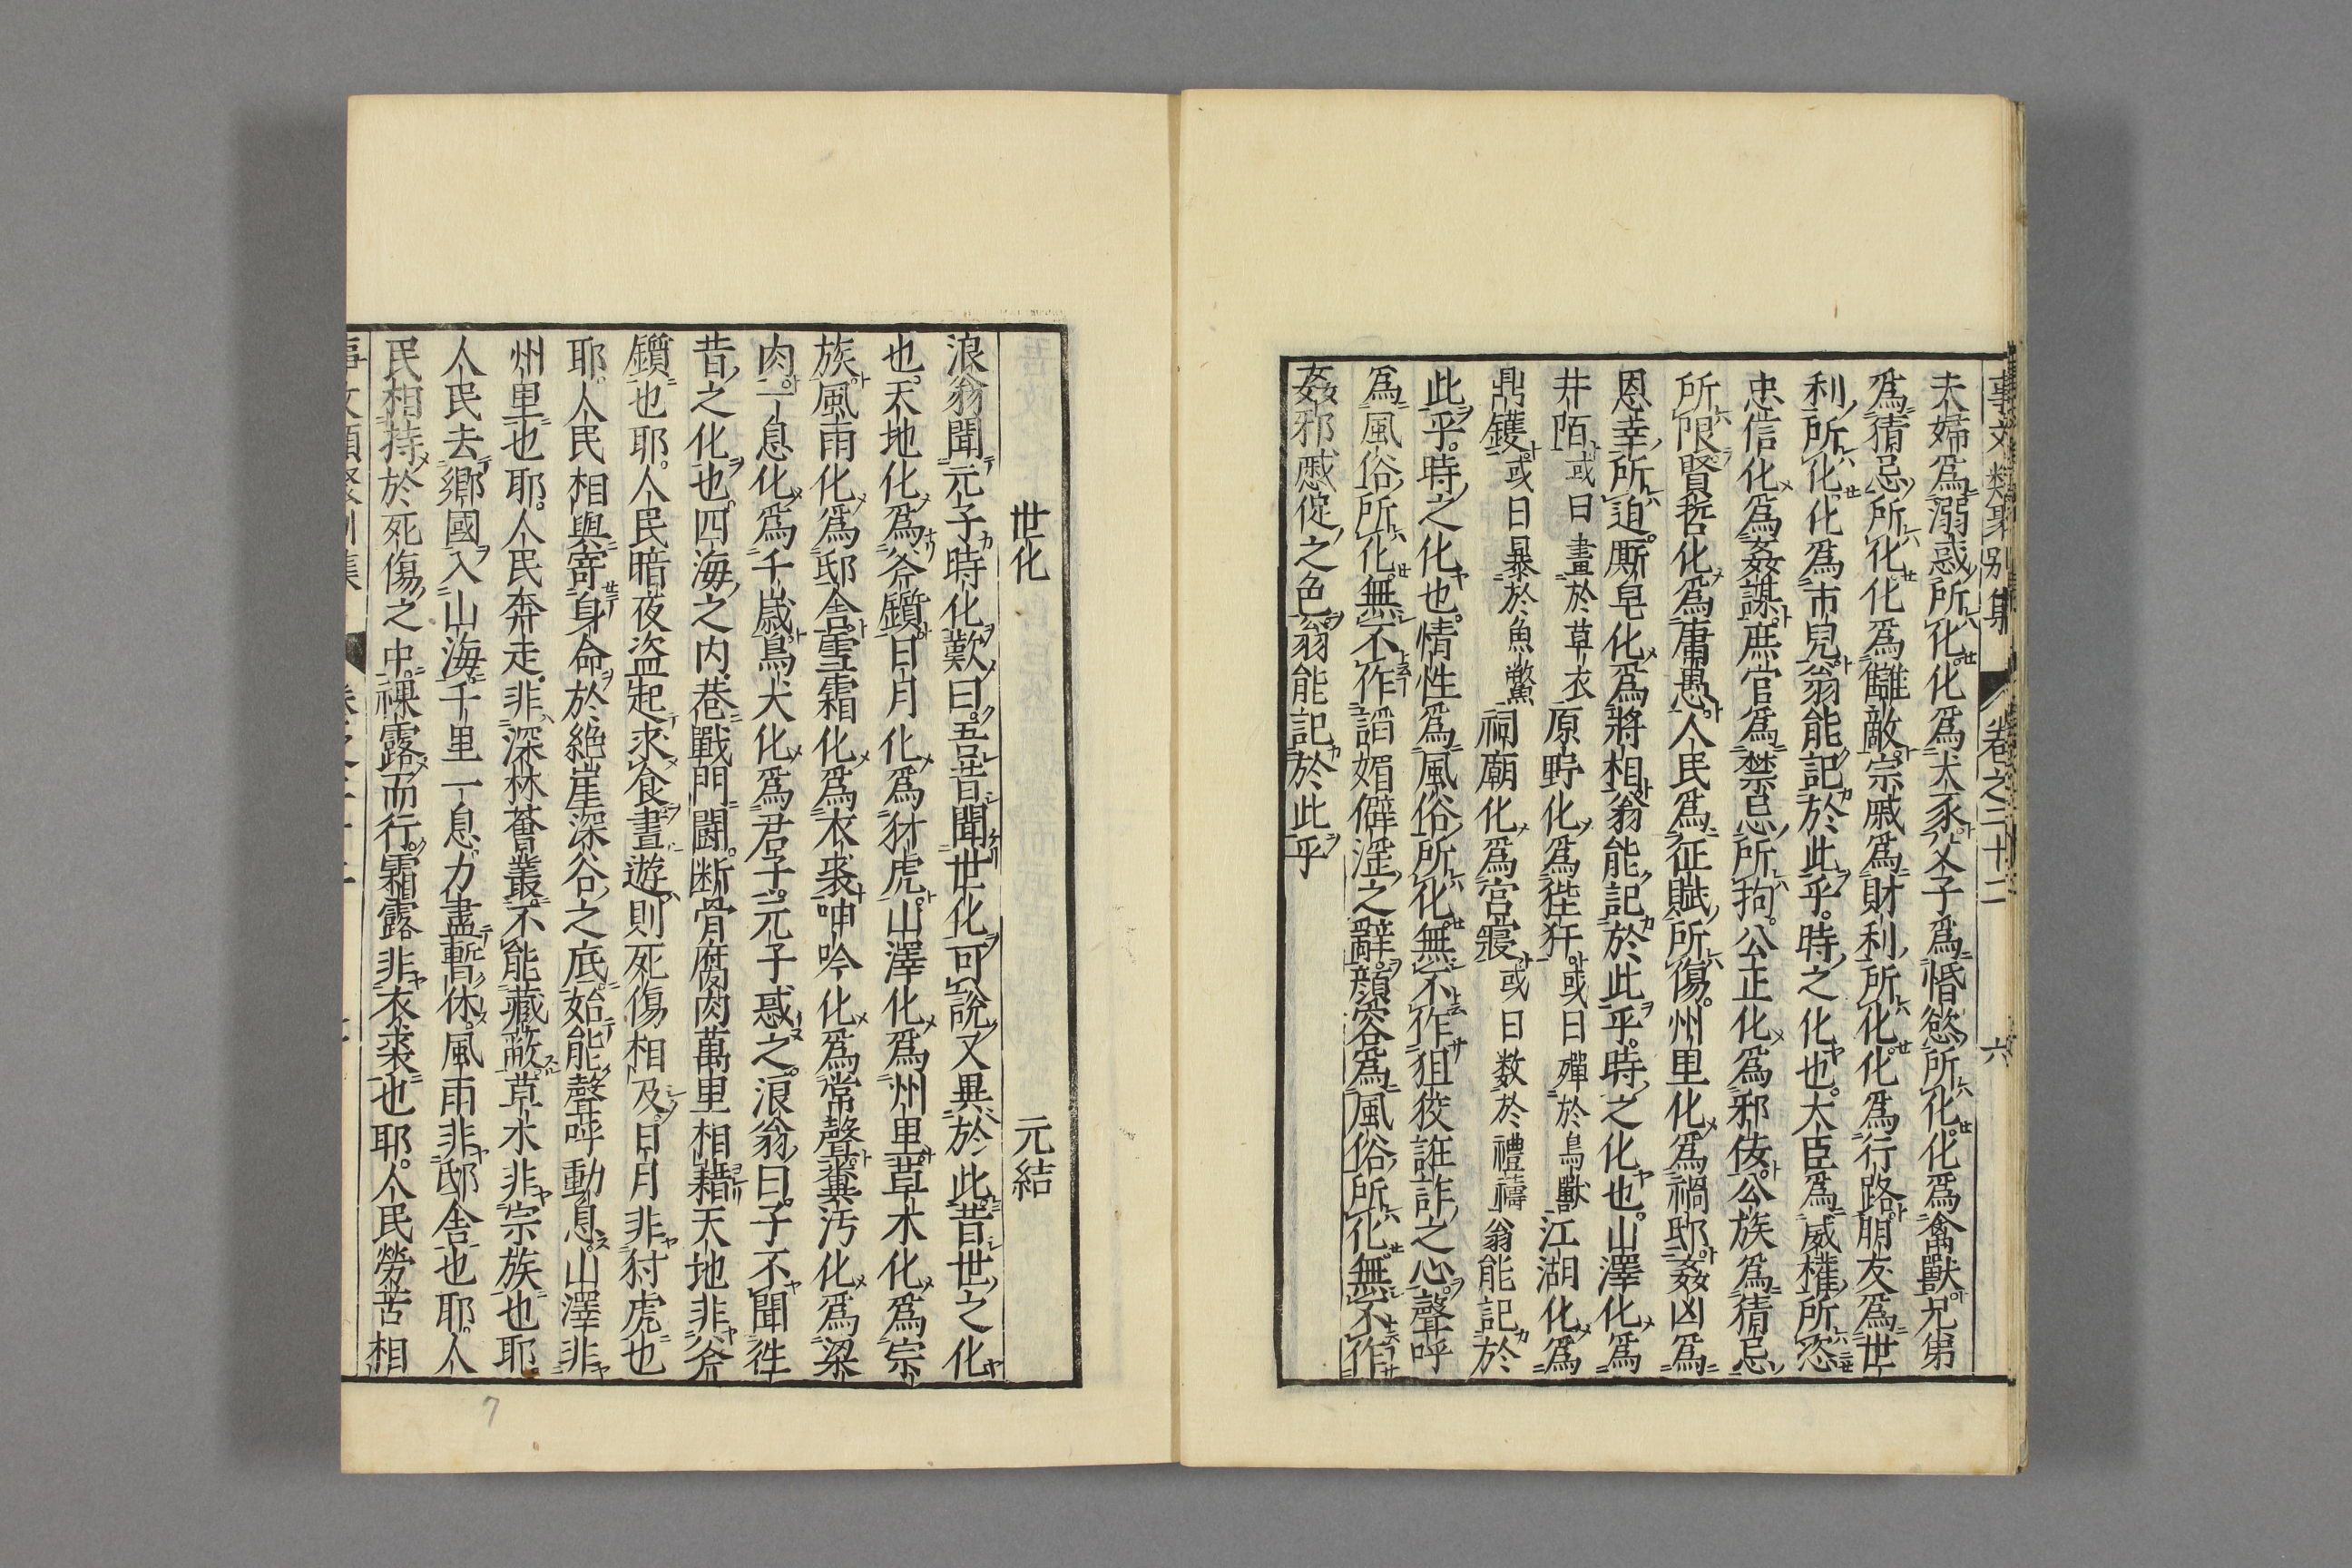 事文類聚别集 卷之三十二 六
夫婦爲溺惑所化化爲犬豕父子爲惛慾所化化爲禽獸兄弟
爲猜忌所化化爲讎敵宗戚爲財利所化化爲行路朋友爲世
利所化化爲市兒翁能記於此乎時之化也大臣爲威權所恣
忠信化爲姦謀庶官爲禁忌所拘公正化爲邪佞公族爲猜忌
所限賢哲化爲庸愚人民爲征賦所傷州里化爲禍邸姦凶爲
恩幸所迫厮皂化爲將相翁能記於此乎時之化也山澤化爲
井陌或曰畫於草衣原野化爲狴犴或曰殫於鳥獸江湖化爲
鼎鑊或曰暴於魚鱉祠廟化爲宮寢或曰数於禮禱翁能記於
此乎時之化也情性爲風俗所化無不作狙狡誑詐之心聲呼
爲風俗所化無不作諂媚僻淫之辭顔容爲風俗所化無不作
姦邪蹙促之色翁能記於此乎
世化 元結
浪翁聞元子時化歎曰吾昔聞世化可說又異於此昔世之化
也天地化爲斧鑕日月化爲豺虎山澤化爲州里草木化爲宗
族風雨化爲邸舎雪霜化爲衣裘呻吟化爲常聲糞汚化爲粱
肉一息化爲千歲鳥犬化爲君子元子惑之浪翁曰子不聞徃
昔之化也四海之内巷戰門鬪断骨腐肉萬里相藉天地非斧
鑕也耶人民暗夜盜起求食晝遊則死傷相及日月非豺虎也
耶人民相與寄身命於絶崖深谷之底始能聲呼動息山澤非
州里也耶人民奔走非深林薈叢不能藏蔽草木非宗族也耶
人民去鄉國入山海千里一息力盡暫休風雨非邸舎也耶人
民相持於死傷之中裸露而行霜露非衣裘也耶人民勞苦相
7